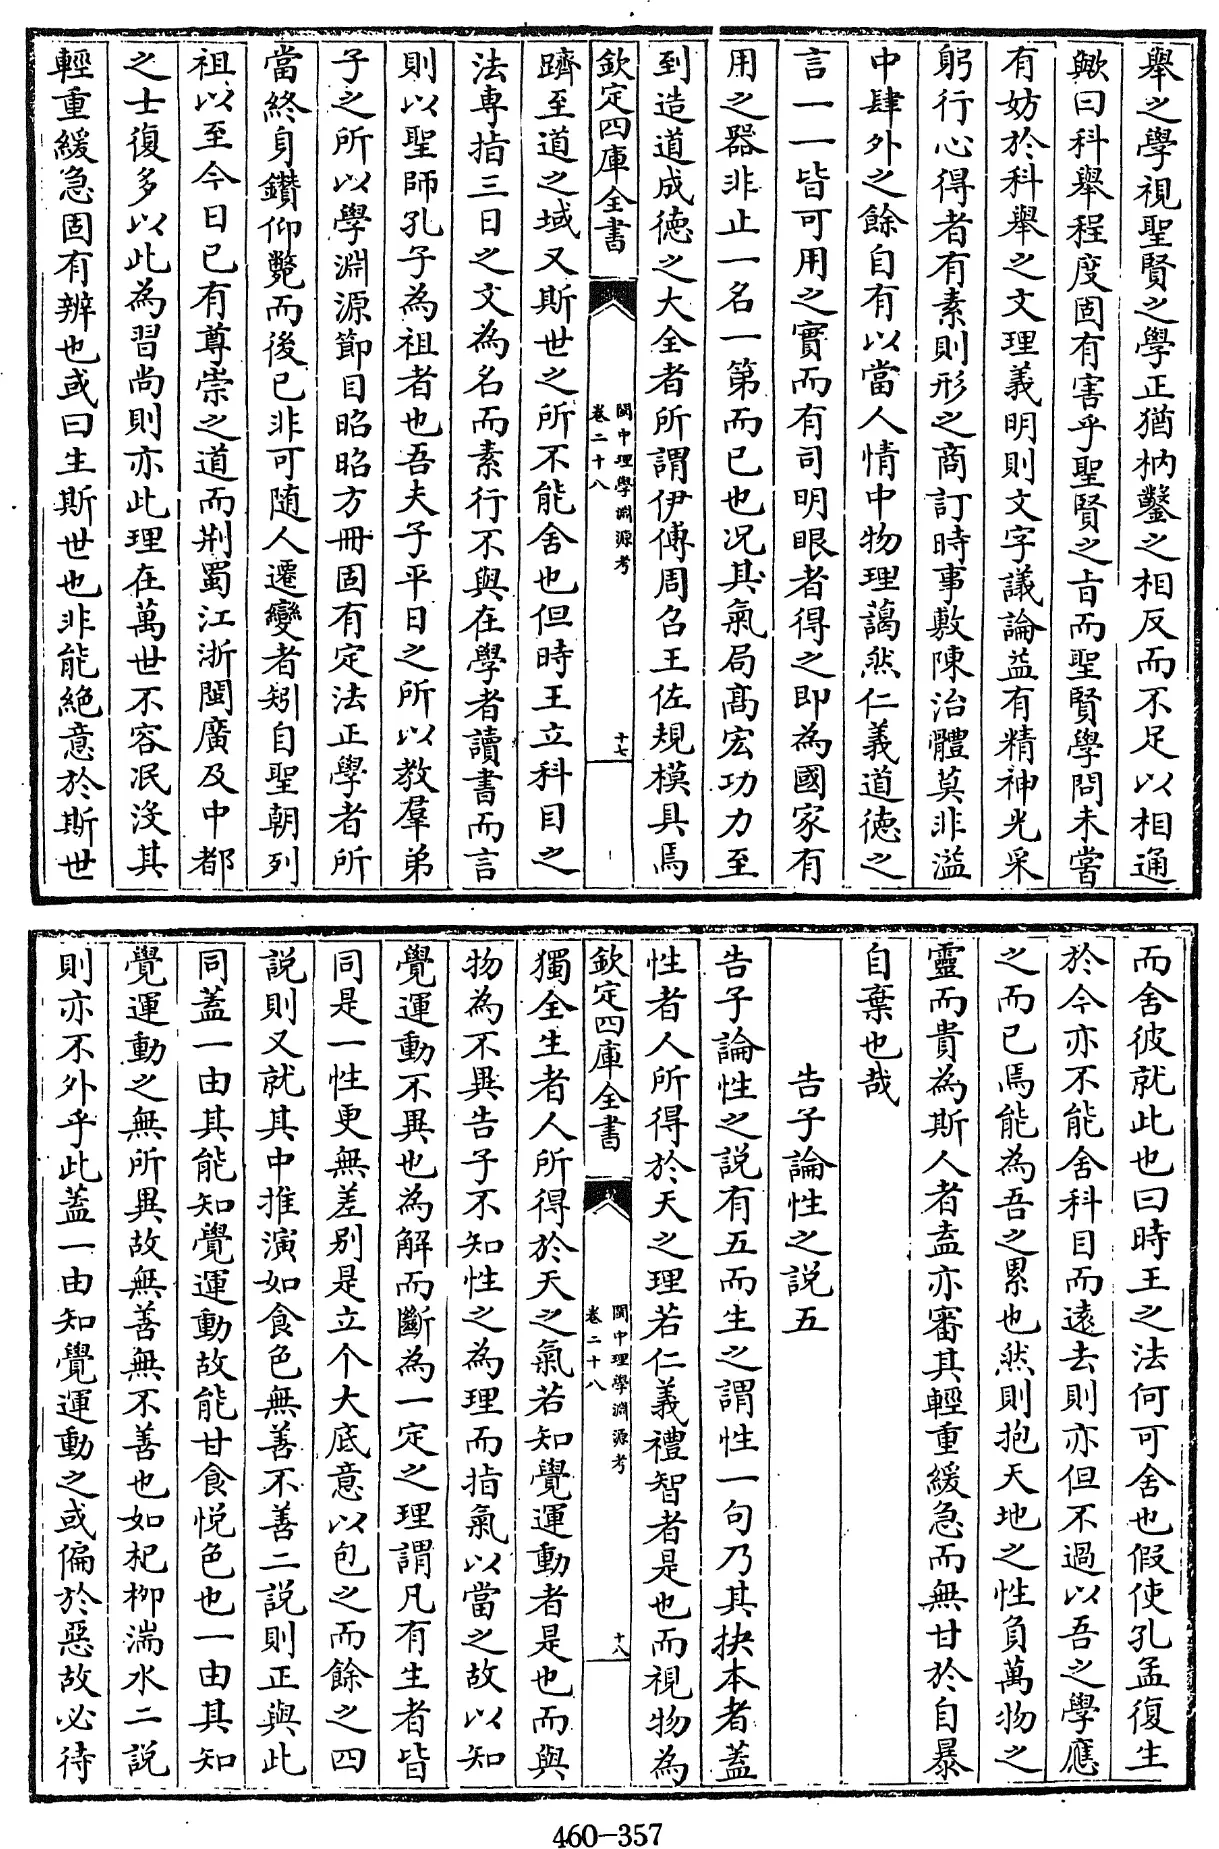 舉之學視聖賢之學正猶枘鑿之相反而不足以相通
歟曰科舉程度固有害乎聖賢之㫖而聖賢學問未嘗
有妨於科舉之文理義明則文字議論益有精神光采
躬行心得者有素則形之商訂時事敷陳治體莫非溢
中肆外之餘自有以當人情中物理藹然仁義道徳之
言一一皆可用之實而有司明眼者得之即為國家有
用之器非止一名一第而已也况其氣局髙宏功力至
到造道成徳之大全者所謂伊傅周召王佐規模具焉
欽定四庫全書
閩中理學淵源考
卷二十八
十七
躋至道之域又斯世之所不能舍也但時王立科目之
法専指三日之文為名而素行不與在學者讀書而言
則以聖師孔子為祖者也吾夫子平日之所以教羣弟
子之所以學淵源節目昭昭方冊固有定法正學者所
當終身鑚仰斃而後已非可随人遷變者矧自聖朝列
祖以至今日已有尊崇之道而荆蜀江浙閩廣及中都
之士復多以此為習尚則亦此理在萬世不容冺沒其
輕重緩急固有辨也或曰生斯世也非能絶意於斯世
而舍彼就此也曰時王之法何可舍也假使孔孟復生
於今亦不能舍科目而逺去則亦但不過以吾之學應
之而已焉能為吾之累也然則抱天地之性負萬物之
靈而貴為斯人者盍亦審其輕重緩急而無甘於自暴
自棄也哉
告子論性之説五
告子論性之説有五而生之謂性一句乃其抉本者蓋
性者人所得於天之理若仁義禮智者是也而視物為
欽定四庫全書
閩中理學淵源考
卷二十八
十八
獨全生者人所得於天之氣若知覺運動者是也而與
物為不異告子不知性之為理而指氣以當之故以知
覺運動不異也為解而斷為一定之理謂凡有生者皆
同是一性更無差别是立个大底意以包之而餘之四
説則又就其中推演如食色無善不善二説則正與此
同蓋一由其能知覺運動故能甘食悦色也一由其知
覺運動之無所異故無善無不善也如杞柳湍水二説
則亦不外乎此蓋一由知覺運動之或偏於惡故必待
460-357